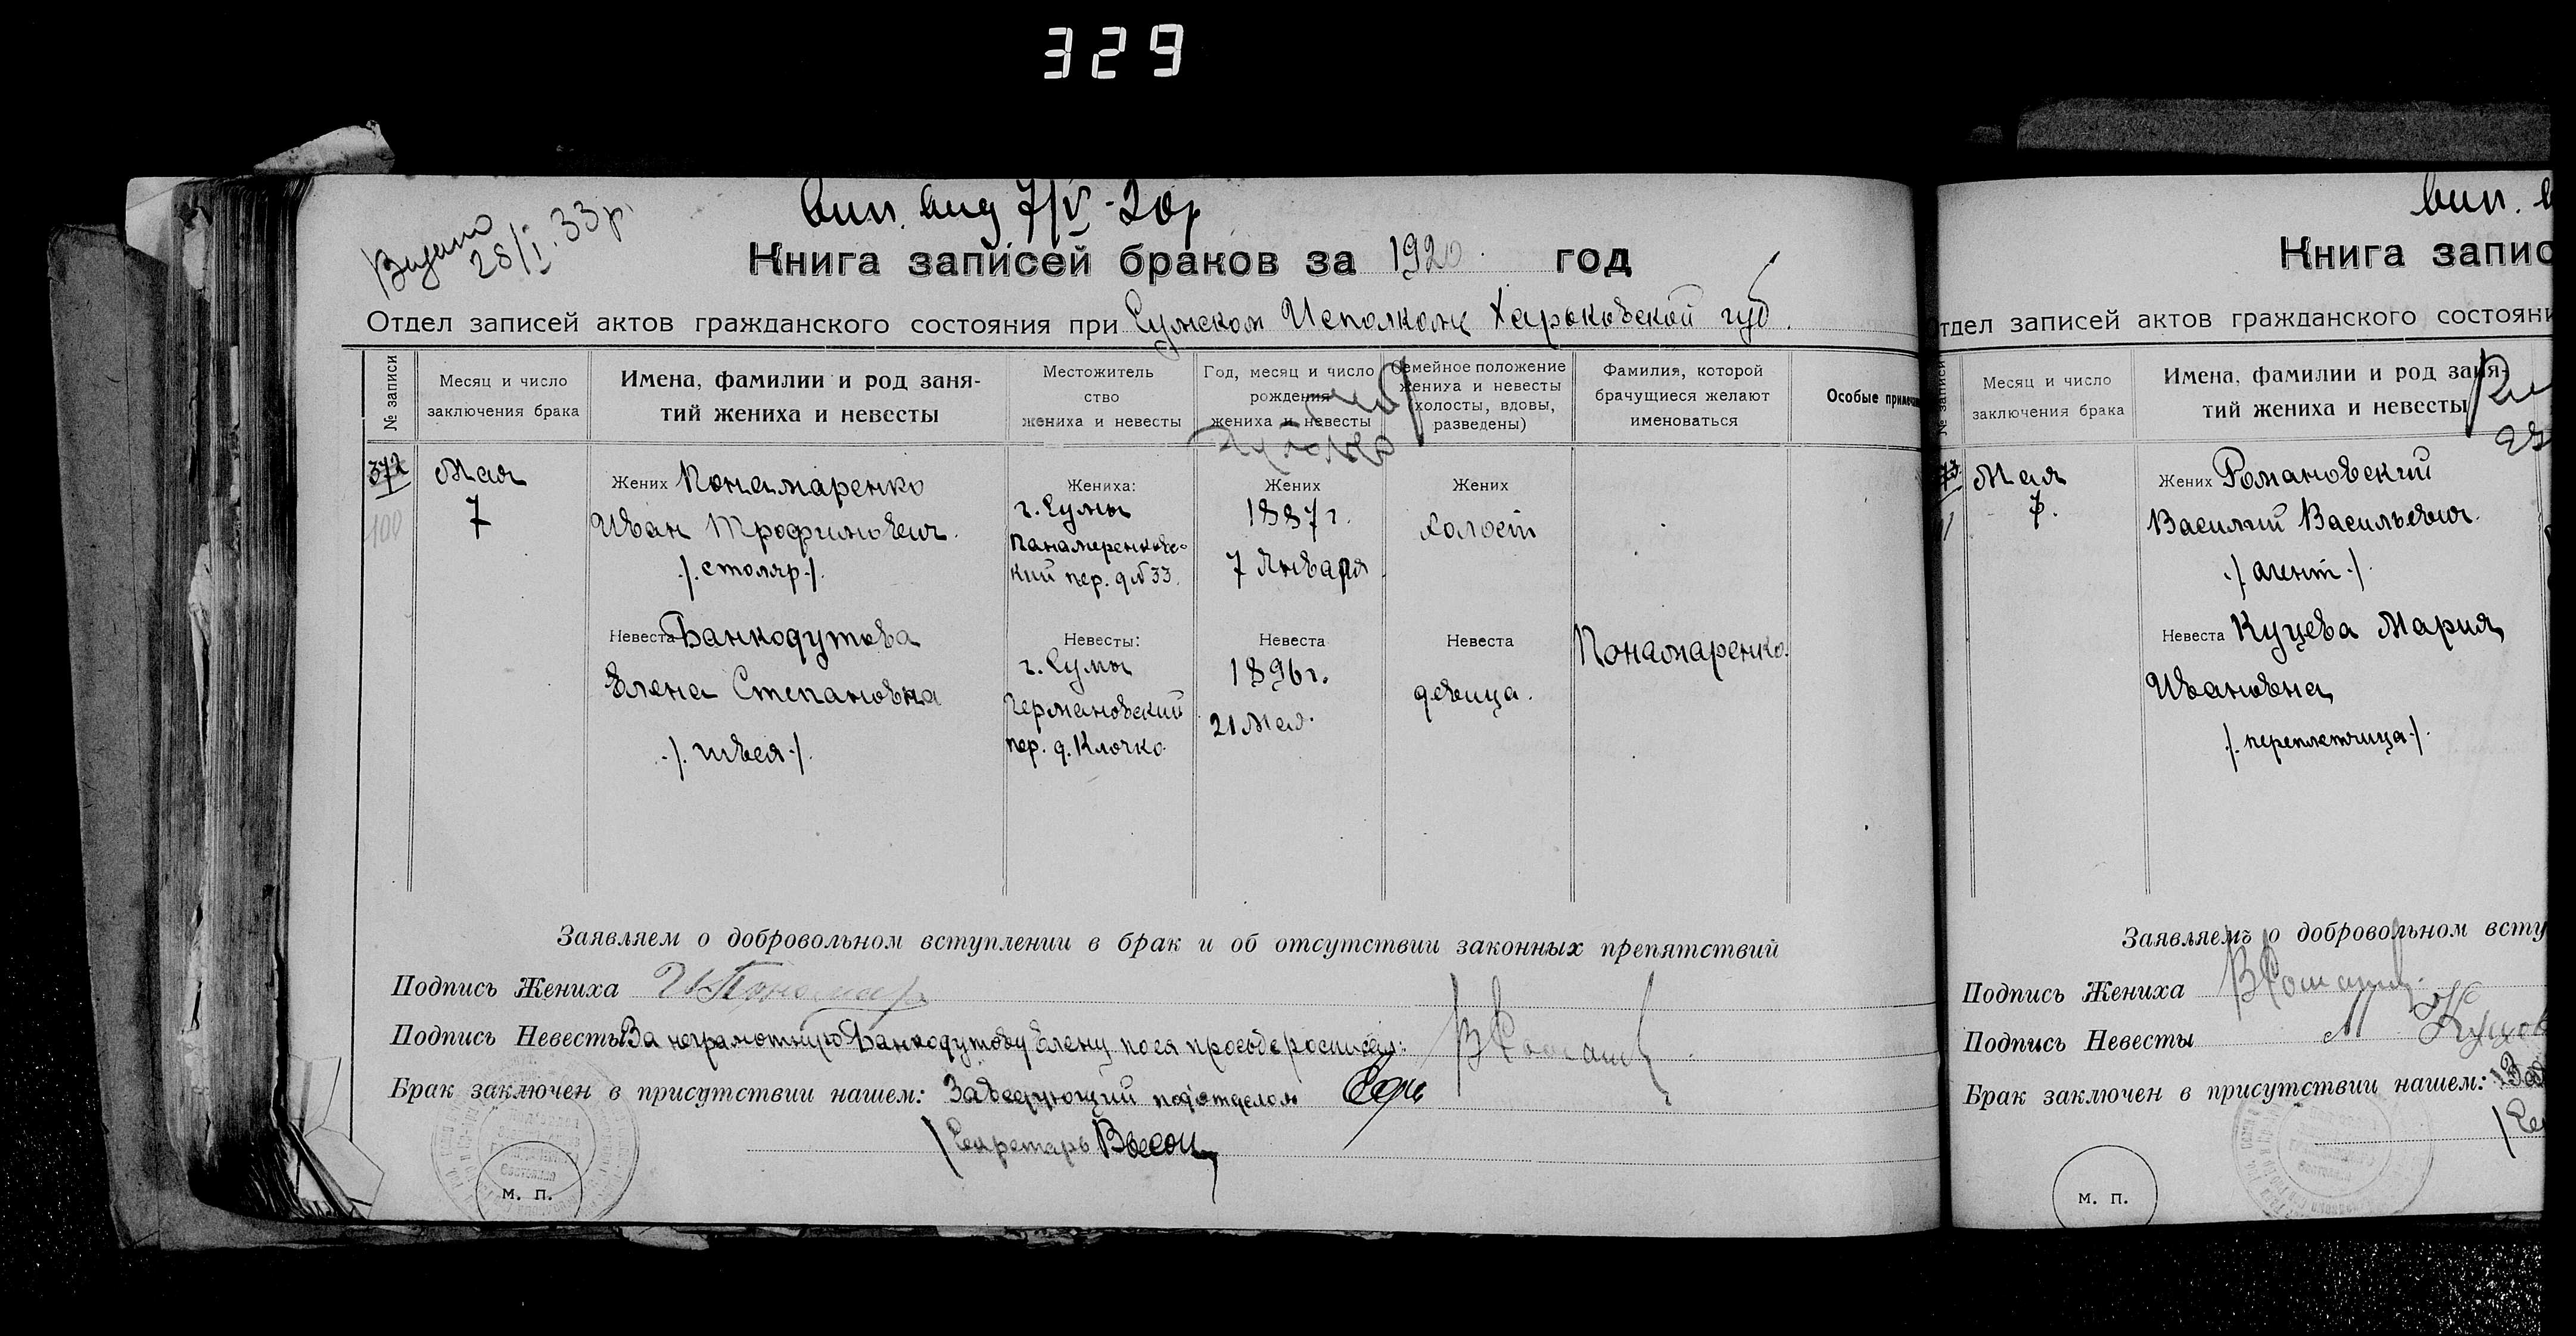 329
Видано
28/I.33р.
вип. вид 7/V-20р
Книга записей браков за 1920 год
Отдел записей актов гражданского состояния при Сумском Исполкоме Харьковской губ.
№ записи
Месяц и число заключения брака
Имена, фамилии и род занятий жениха и невесты
Местожительство жениха и невесты
Год, месяц и число рождения жениха и невесты
Семейное положение жениха и невесты (холосты, вдовы, разведены)
Фамилия, которой брачущиеся желают именоваться
Особые
372
100
Мая
7
Жених Понамаренко
Иван Трофимович.
/. столяр ./.
Жениха:
г. Сумы
Панамеренковс-
кий пер. д № 33.
Жених
1887 г.
7 Января
Жених
Холост
Невеста Банкодутова
Елена Степановна
./. швея ./.
Невесты:
г. Сумы
Германовский
пер. д. Клочко
Невеста
1896 г.
21 Мая.
Невеста
девица.
Понамаренко.
Заявляем о добровольном вступлении в брак и об отсутствии законных препятствий
Подпись Жениха И Пономар
Подпись Невесты За неграмотную Банкодутову Елену по ея просьбе росписал:
Брак заключен в присутствии нашем: Заведующий подотделом
Секретарь
м. п.
вип.
Книга запис
тдел записей актов гражданского состояни
№ записи
Месяц и число заключения брака
Имена, фамилии и род заня-
тий жениха и невесты
Мая
7.
Жених Романовский
Василий Васильевич.
./. агент ./.
Невеста Куцева Мария
Ивановна
./. переплетчица ./.
Заявляемъ о добровольном всту
Подпись Жениха
Подпись Невесты М
Брак заключен в присутствии нашем: Зав
/Се
м. п.